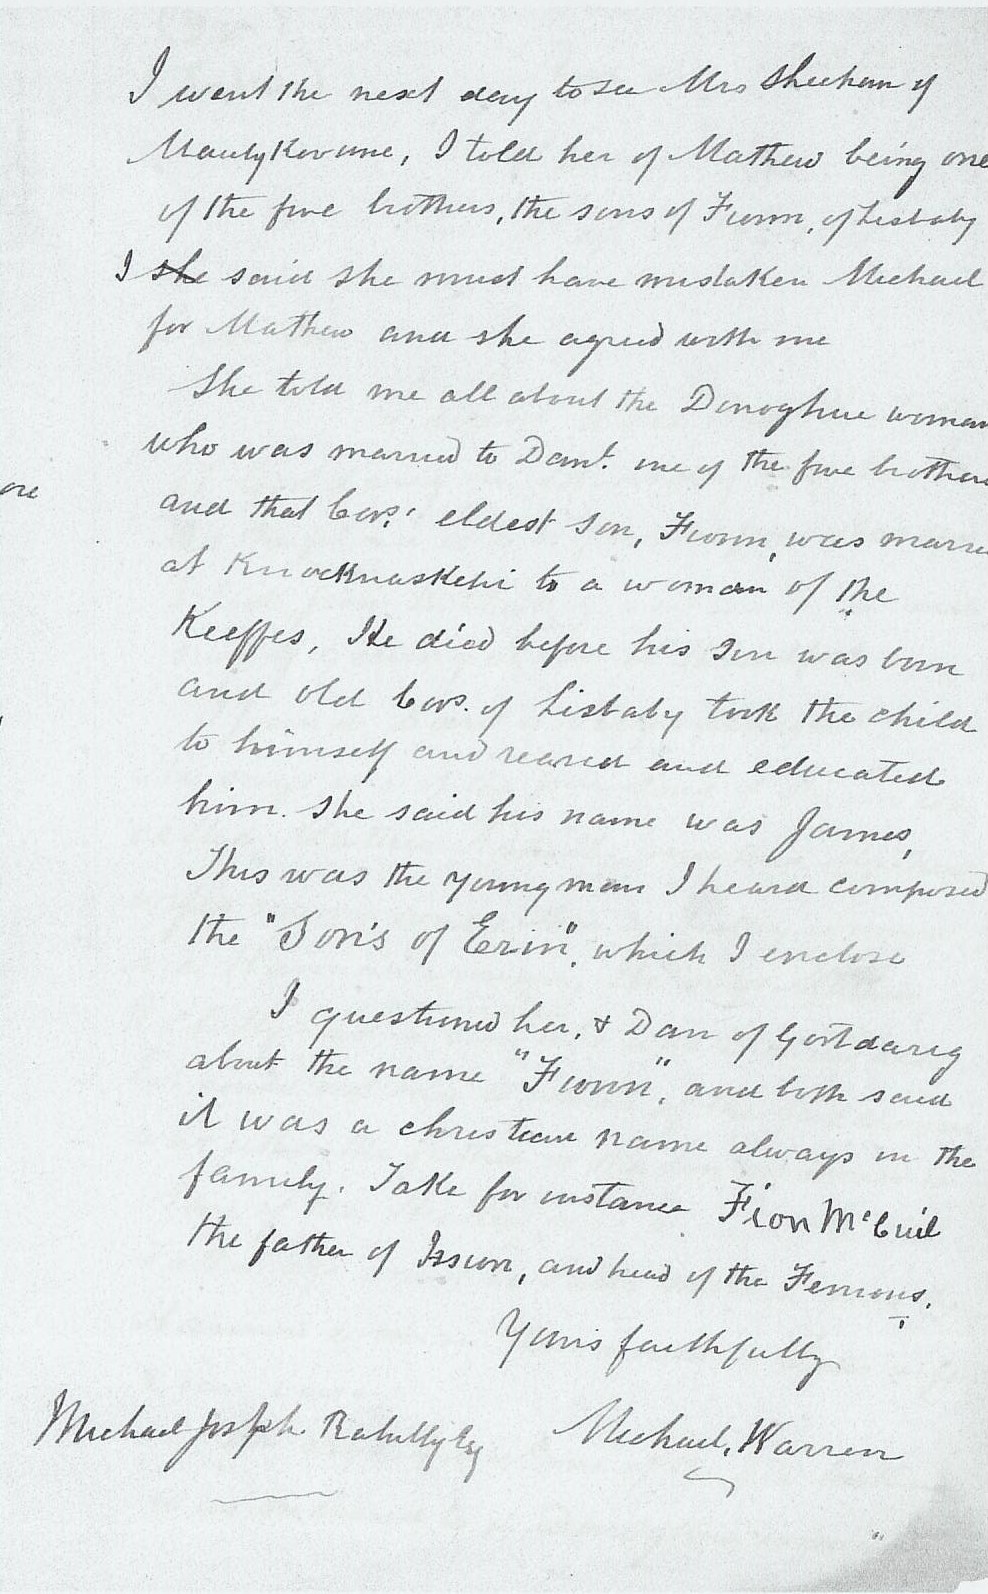 I went the next day to see Mrs Sheehan of
I told her of Mathew being one
of the five brothers, the sons of Fionn, of Lisbaby
I she said she must have mistaken Michael
for Mathew and she agreed with me
She told me all about the Donoghue woman
who was married to Danl. one of the five brothers
ore
and that Cors: eldest son, Fionn, was marri
at Knocknaskehi to a woman of the
Keeffes, He died before his son was born
and old Cors. of Lisbaby took the child
to himself and reared and educated
him. She said his name was James,
This was the young man I heard composed
the "Son's of Erin", which I enclose
I questioned her, & Dan of Gortdarig
about the name "Fionn", and both said
it was a christian name always in the
family. Take for instance Fion McCuil
the father of Ission, and head of the Fenions.
Yours faithfully
Michael Joseph Rahilly Esq
Michael, Warren